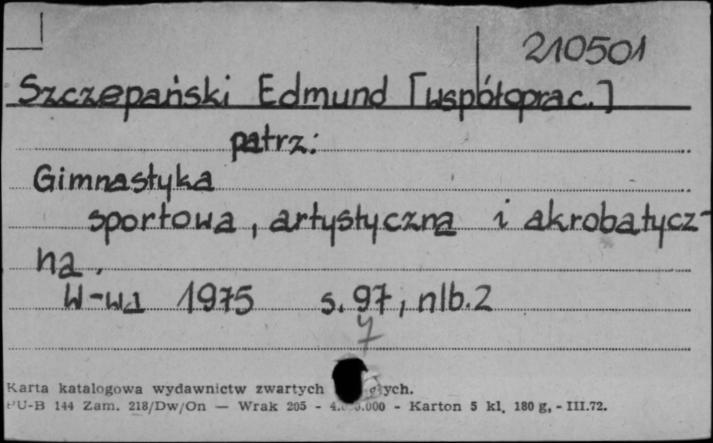 210501
Szczepański Edmund [współoprac.]
patrz:
Gimnastyka
sportowa, artystyczna i akrobatycz-
na.
W-wa 1975 s. 97, nlb. 2
Karta katalogowa wydawnictw zwartych
PU-B 144 Zam. 218/Dw/On — Wrak 205 - - Karton 5 kl. 180 g, - III.72.